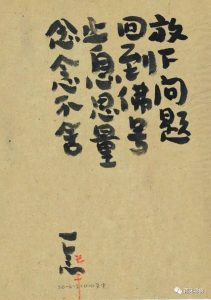 放下问题
回到佛号
止息思量
念念不舍
一念